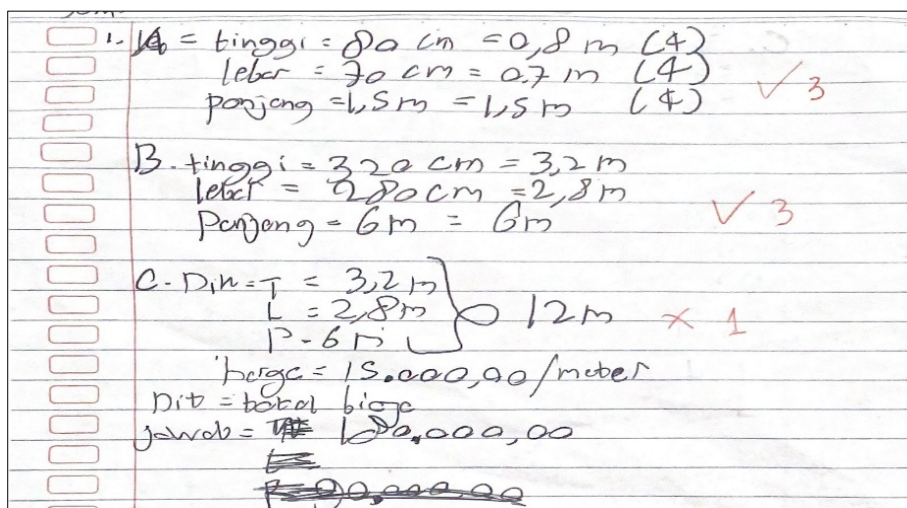 1. A = tinggi = 80 cm = 0,8 m (4)
lebar = 70 cm = 0.7 m (4)
panjang = 1,5 m = 1,5 m (4) ✓ 3
B. tinggi = 320 cm = 3,2 m
lebar = 280 cm = 2,8 m
Panjang = 6 m = 6 m ✓ 3
C. Dik = T = 3,2 m
L = 2,8 m 12 m × 1
P = 6 m
harga = 15.000,00/meter
Dit = total biaya
jawab = 180.000,00